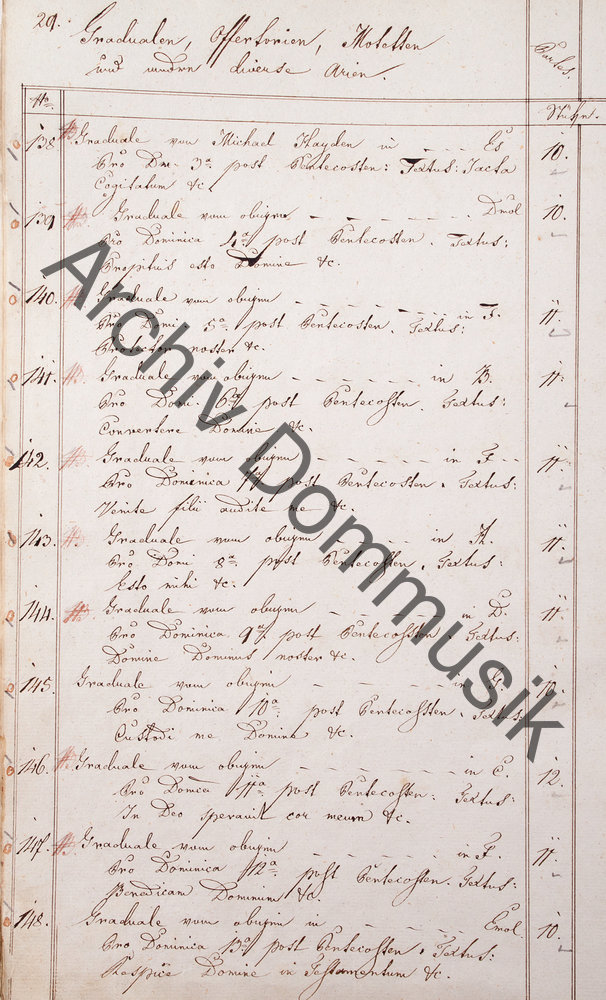 29.
Gradualen, Offertorien, Motetten
und andere diverse Arien.
Partes.
No.
Stükn.
138 Graduale von Michael Hayden in Es 10.
Pro Dm. 3a post Pentecosten: Textus: Jacta
Cogitatum &c.
139 Graduale vom obigen Dmol 10.
Pro Dominica 4a post Pentecosten. Textus:
Propitius esto Domine &c.
140. Graduale vom obigen in F. 11.
Pro Domi 5a post Pentecosten. Textus:
Protector noster &c.
141. Graduale vom obigen in B. 11.
Pro Domi. 6a post Pentecosten. Textus:
Convertere Domine &c.
142. Graduale vom obigen in F 11.
Pro Dominica 7a post Pentecosten. Textus:
Venite filii audite me &c.
143. Graduale vom obigen in A. 11.
Pro Domi 8a post Pentecosten. Textus:
Esto mihi &c.
144. Graduale vom obigen in D. 11.
Pro Dominica 9a post Pentecosten. Textus:
Domine Dominus noster &c.
145. Graduale vom obigen in 10.
Pro Dominica 10a post Pentecosten. Textus
Custodi me Domine &c.
146. Graduale vom obigen in C. 12.
Pro Domica 11a post Pentecosten. Textus:
In Deo speravit cor meum &c.
147. Graduale vom obigen in F. 11.
Pro Dominica 12a post Pentecosten. Textus:
Benedicam Dominum &c.
148. Graduale vom obigen in Emol 10.
Pro Dominica 13a post Pentecosten. Textus:
Respice Domine in Testamentum &c.
Archiv Dommusik